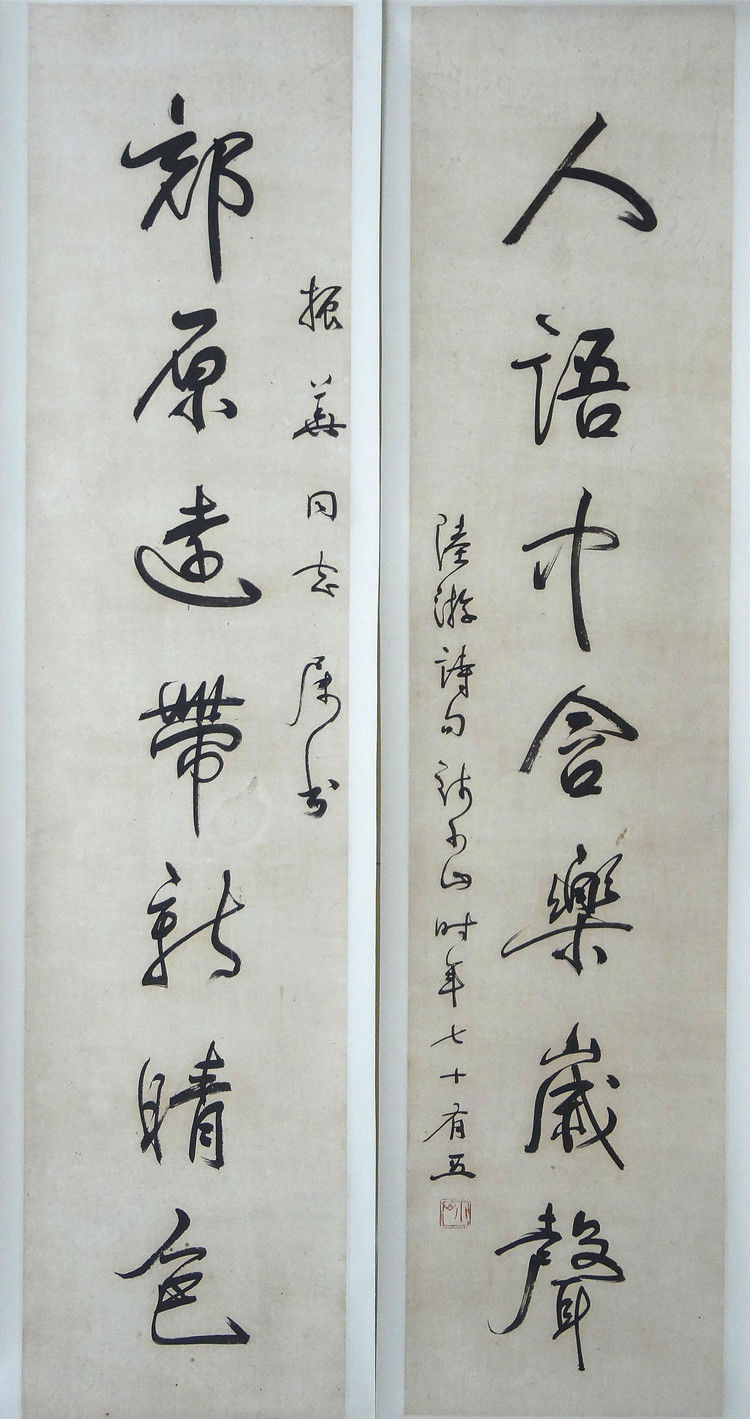 振華同志屬書
郊原遠帶新晴色
人語中含樂歲聲
陸游詩句錢小山时年七十有五